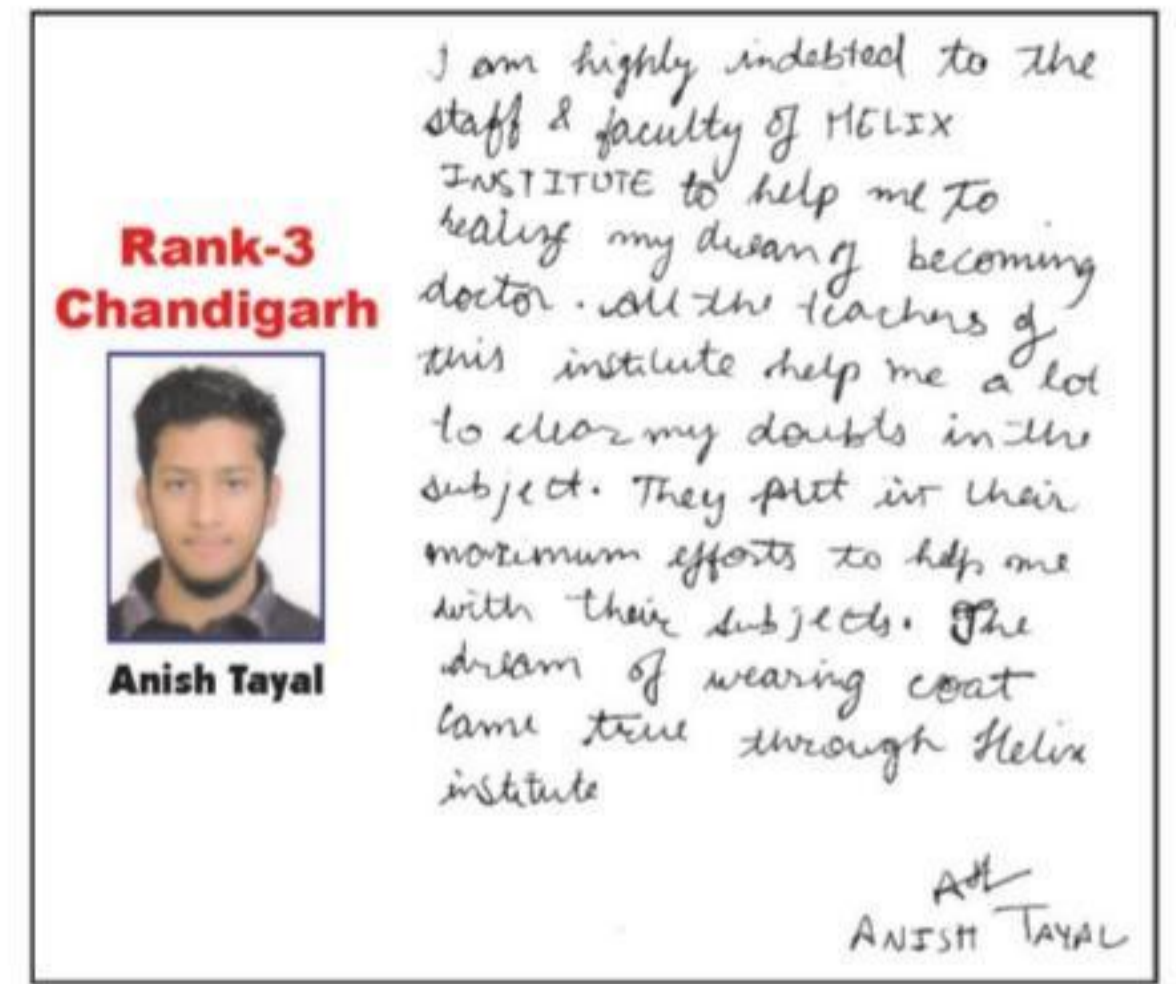 Rank-3
Chandigarh
Anish Tayal
I am highly indebted to the
staff & faculty of HELIX
INSTITUTE to help me to
realize my dream of becoming
doctor. All the teachers of
this institute help me a lot
to clear my doubts in the
subject. They put in their
maximum efforts to help me
with their subjects. The
dream of wearing coat
came true through Helix
institute
ANISH TAYAL